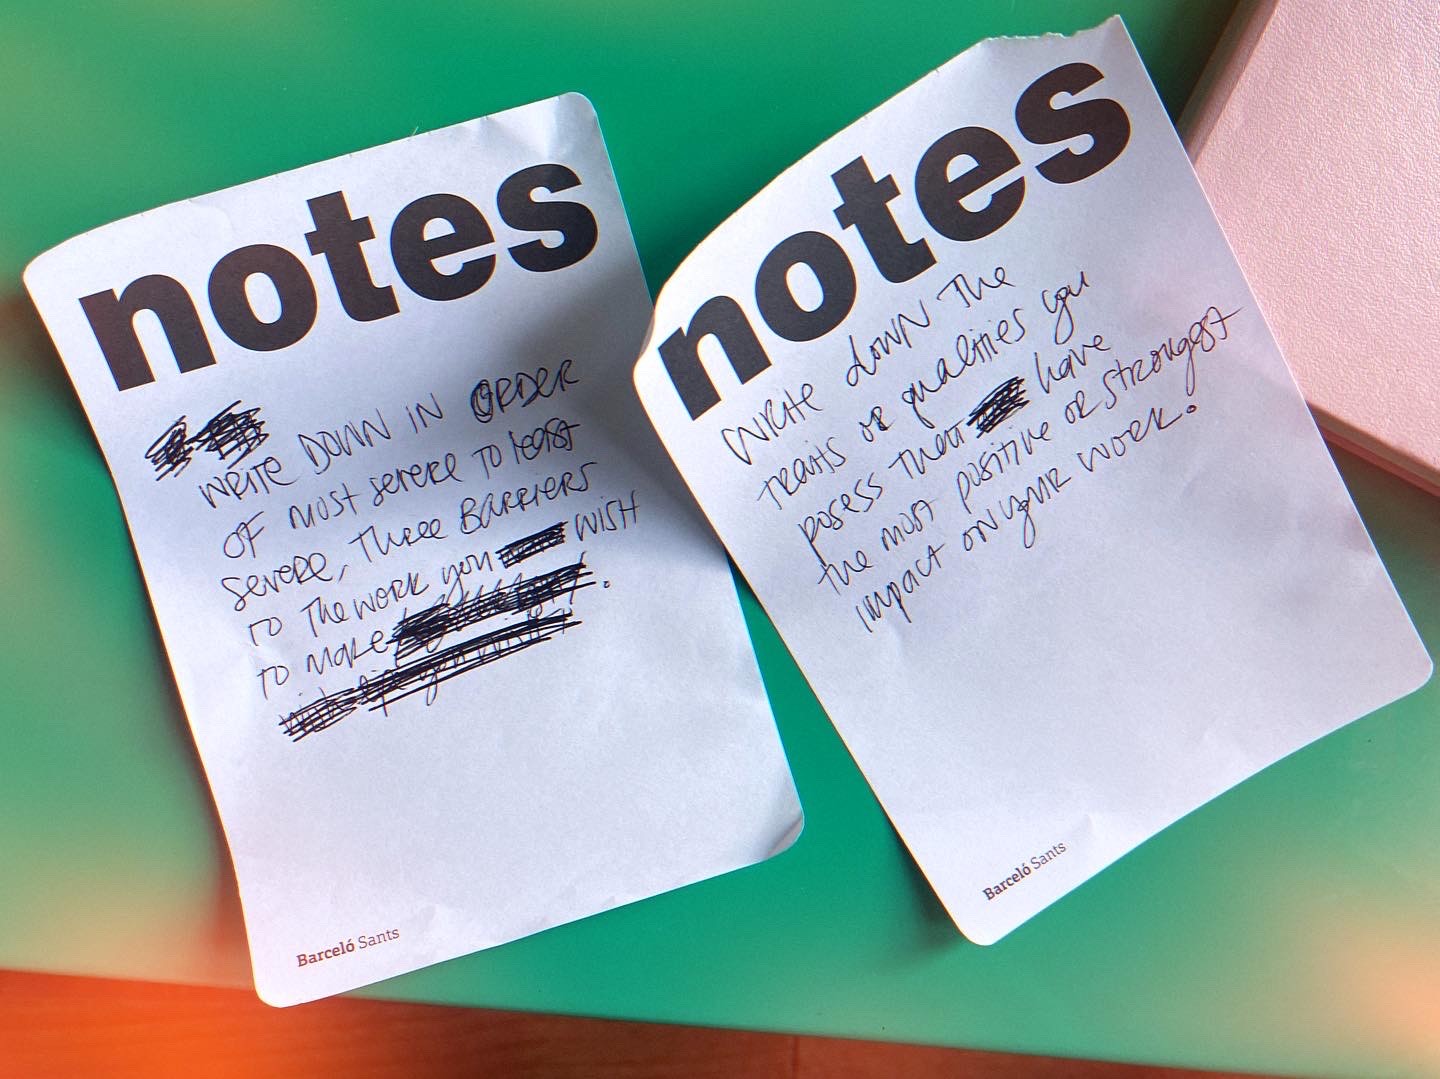 notes
WRITE DOWN IN ORDER
OF MOST SEVERE TO LEAST
SEVERE, THREE BARRIERS
TO THE WORK YOU WISH
TO MAKE.
Barceló Sants
notes
WRITE DOWN THE
TRAITS OR QUALITIES YOU
POSESS THAT HAVE
THE MOST POSITIVE OR STRONGEST
IMPACT ON YOUR WORK.
Barceló Sants